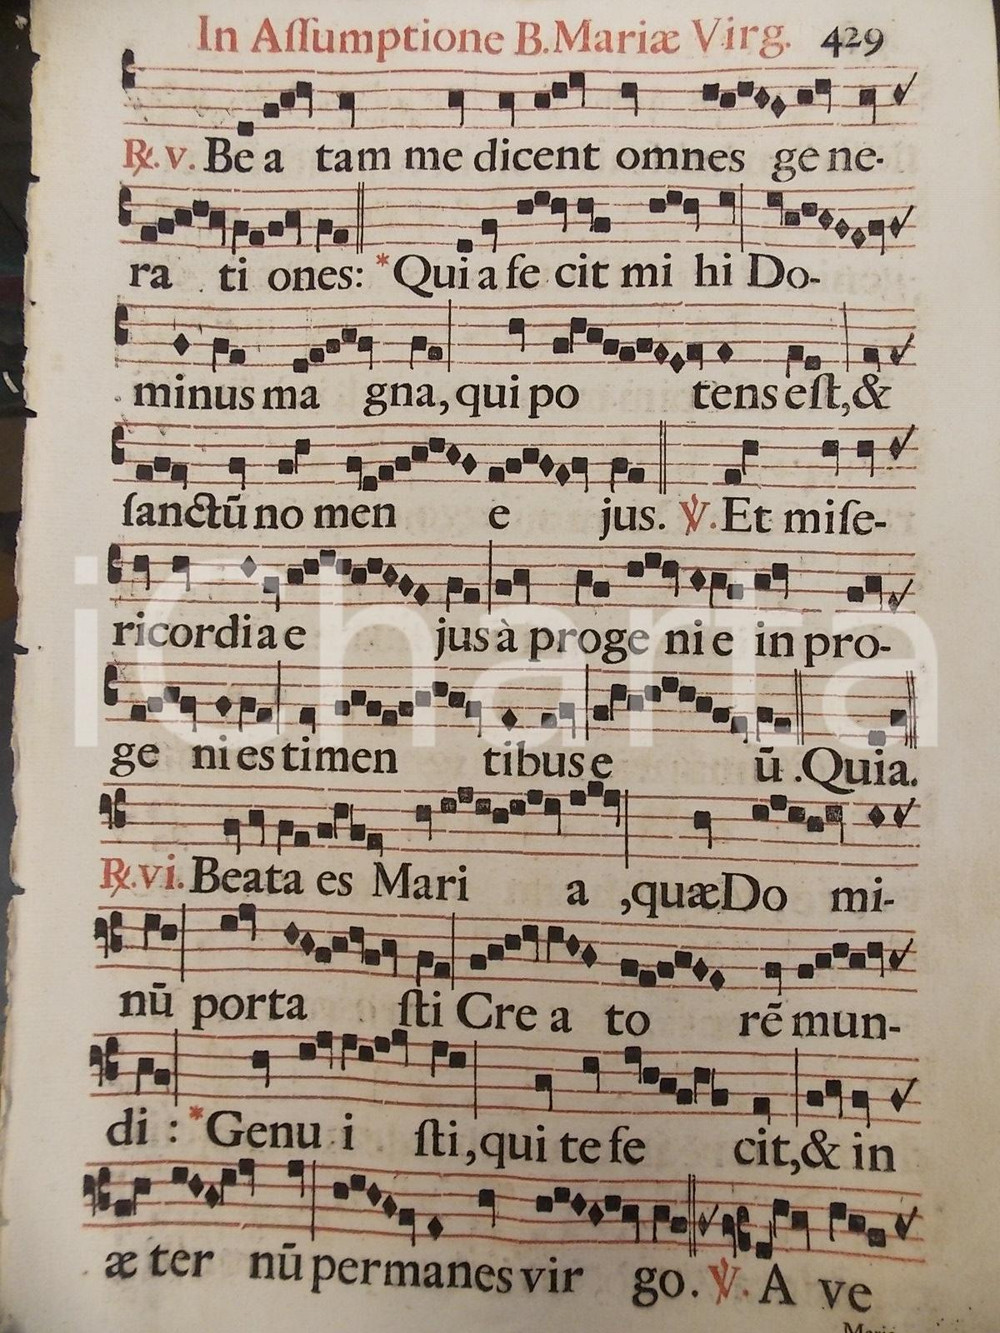 In Aſſumptione B. Mariæ Virg. 429
℟. v. Be a tam me dicent omnes ge ne-
ra ti ones: *Qui a fe cit mi hi Do-
minus ma gna, qui po tens eſt, &
ſanctū no men e jus. ℣. Et miſe-
ricordia e jus à proge ni e in pro-
ge ni es timen tibus e ū. Quia.
℟. vi. Beata es Mari a, quæ Do mi-
nū porta ſti Cre a to rē mun-
di: *Genu i ſti, qui te fe cit, & in
æ ter nū permanes vir go. ℣. A ve
iCharta